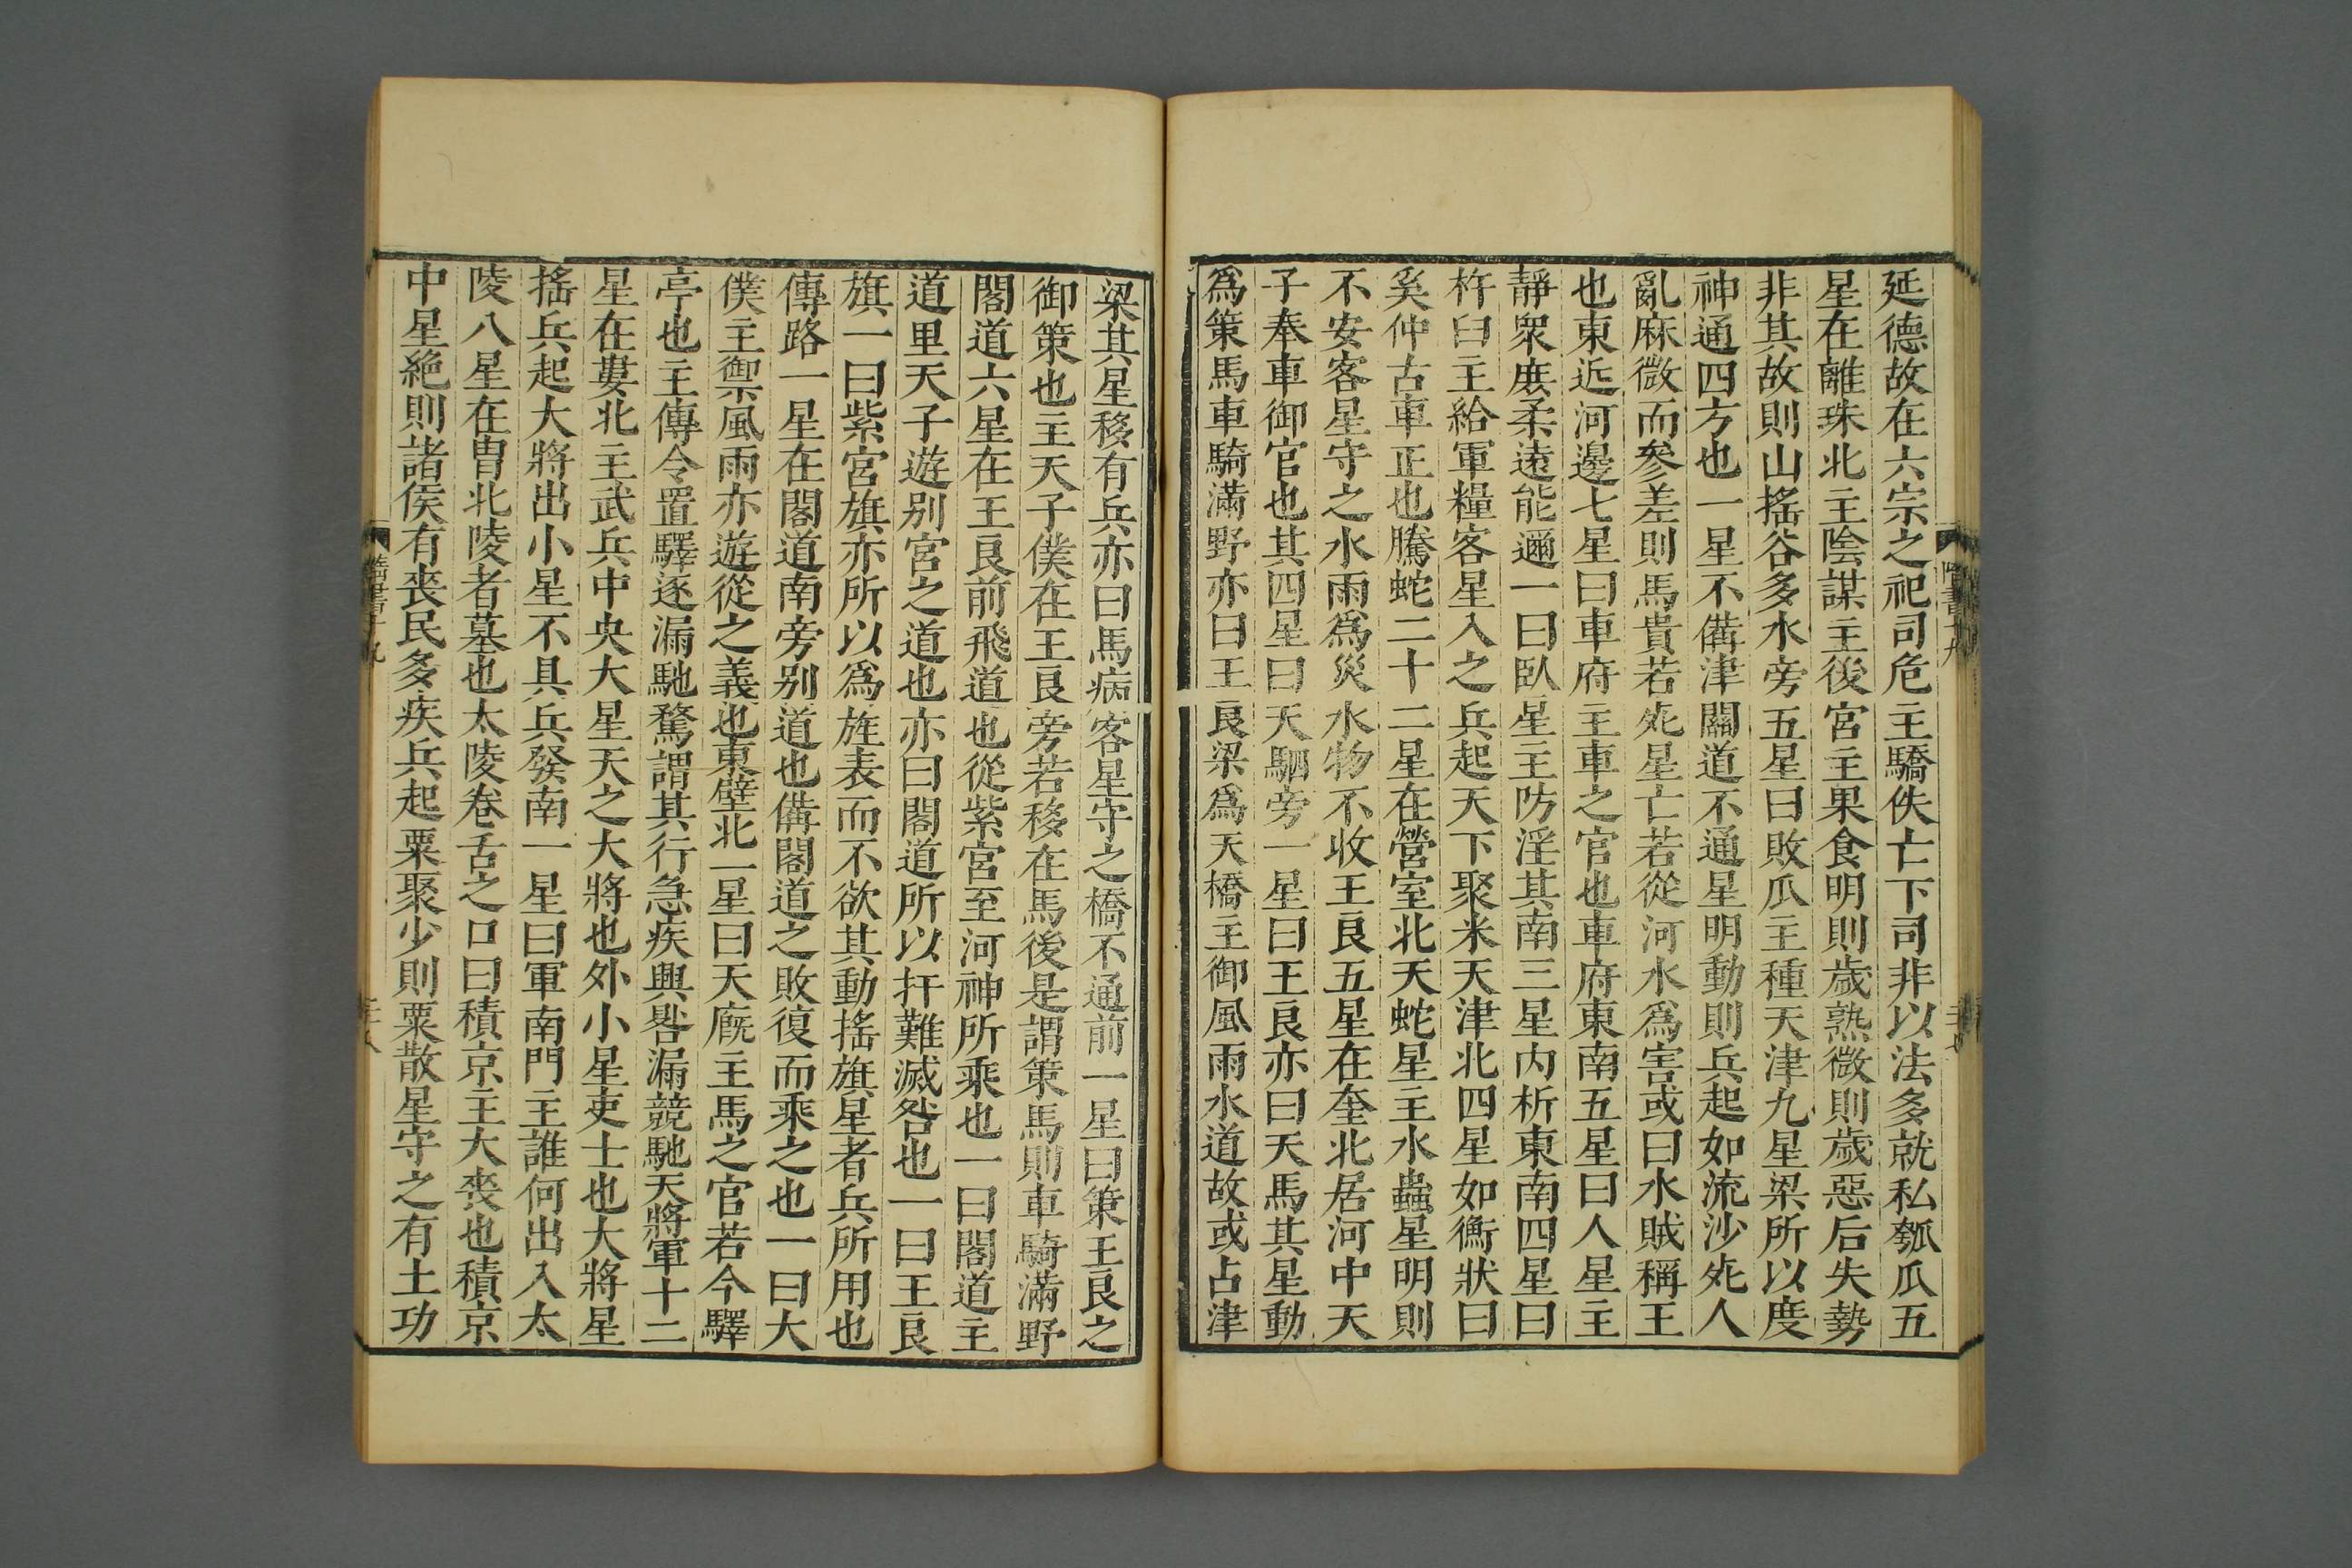 延德故在六宗之祀司危主驕佚亡下司非以法多就私瓠瓜五
星在離珠北主陰謀主後宮主果食明則歲熟微則歲惡后失勢
非其故則山搖谷多水旁五星曰敗瓜主種天津九星梁所以度
神通四方也一星不備津關道不通星明動則兵起如流沙死人
亂麻微而參差則馬貴若死星亡若從河水爲害或曰水賊稱王
也東近河邊七星曰車府主車之官也車府東南五星曰人星主
靜衆庶柔遠能邇一曰臥星主防淫其南三星内析東南四星曰
杵臼主給軍糧客星入之兵起天下聚米天津北四星如衡狀曰
奚仲古車正也騰蛇二十二星在營室北天蛇星主水蟲星明則
不安客星守之水雨爲災水物不收王良五星在奎北居河中天
子奉車御官也其四星曰天駟旁一星曰王良亦曰天馬其星動
爲策馬車騎滿野亦曰王良梁爲天橋主御風雨水道故或占津
梁其星移有兵亦曰馬病客星守之橋不通前一星曰策王良之
御策也主天子僕在王良旁若移在馬後是謂策馬則車騎滿野
閣道六星在王良前飛道也從紫宮至河神所乘也一曰閣道主
道里天子遊别宮之道也亦曰閣道所以扞難滅咎也一曰王良
旗一曰紫宮旗亦所以爲旌表而不欲其動搖旗星者兵所用也
傳路一星在閣道南旁别道也備閣道之敗復而乘之也一曰大
僕主禦風雨亦遊從之義也東壁北一星曰天廐主馬之官若今驛
亭也主傳令置驛逐漏馳騖謂其行急疾與晷漏競馳天將軍十二
星在婁北主武兵中央大星天之大將也外小星吏士也大將星
搖兵起大將出小星不具兵發南一星曰軍南門主誰何出入太
陵八星在胃北陵者墓也太陵卷舌之口曰積京主大喪也積京
中星絶則諸侯有喪民多疾兵起粟聚少則粟散星守之有土功